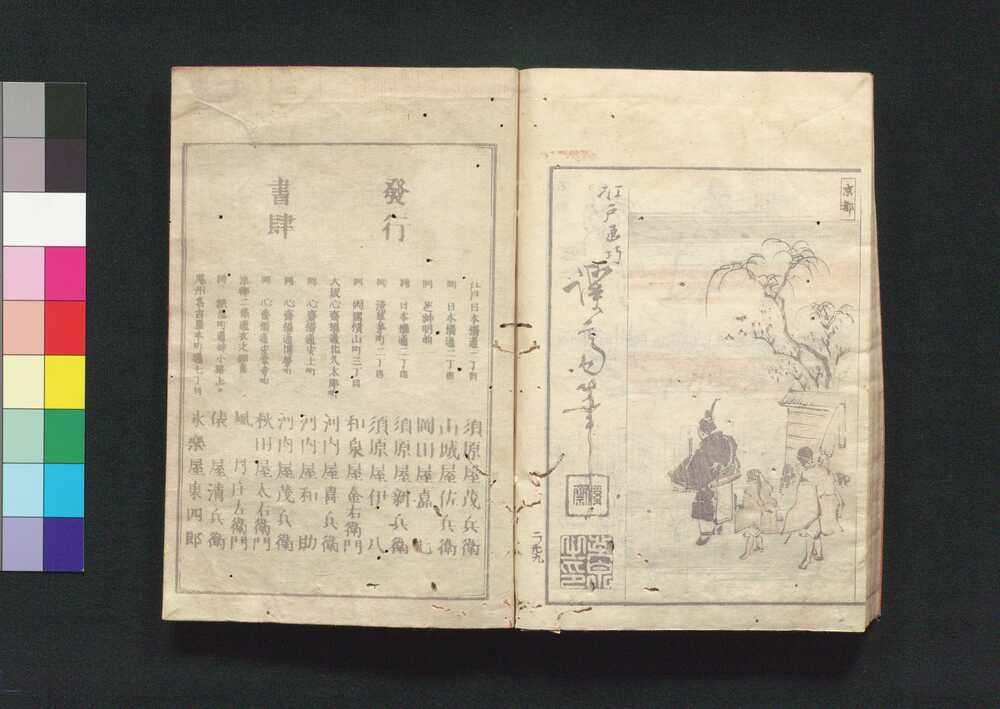 京都
江戸画巧
溪斎
二ノ卅九
發行
書肆
江戸日本橋通一丁目 須原屋茂兵衛
同 日本橋通二丁目 山城屋佐兵衛
同 芝神明前 岡田屋嘉七
同 日本橋通二丁目 須原屋新兵衛
同 浅草茅町二丁目 須原屋伊八
同 両国横山町三丁目 和泉屋金右衛門
大阪心斎橋通北久太郎町 河内屋喜兵衛
同 心斎橋通安土町 河内屋和助
同 心斎橋通博労町 河内屋茂兵衛
同 心斎橋通安堂寺町 秋田屋太右衛門
京都二条通衣之棚 風月庄左衛門
俵屋清兵衛
尾州名古屋本町通七丁目 永樂屋東四郎